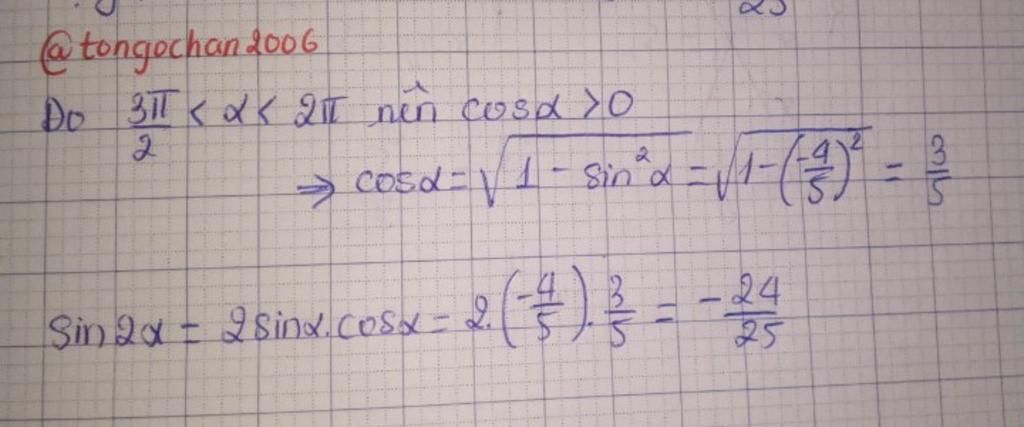 @tongochan2006
Do 3π/2 < α < 2π nên cosα > 0
⇒ cosα = √(1 - sin²α) = √(1 - (-4/5)²) = 3/5
sin2α = 2sinα.cosα = 2.(-4/5).3/5 = -24/25